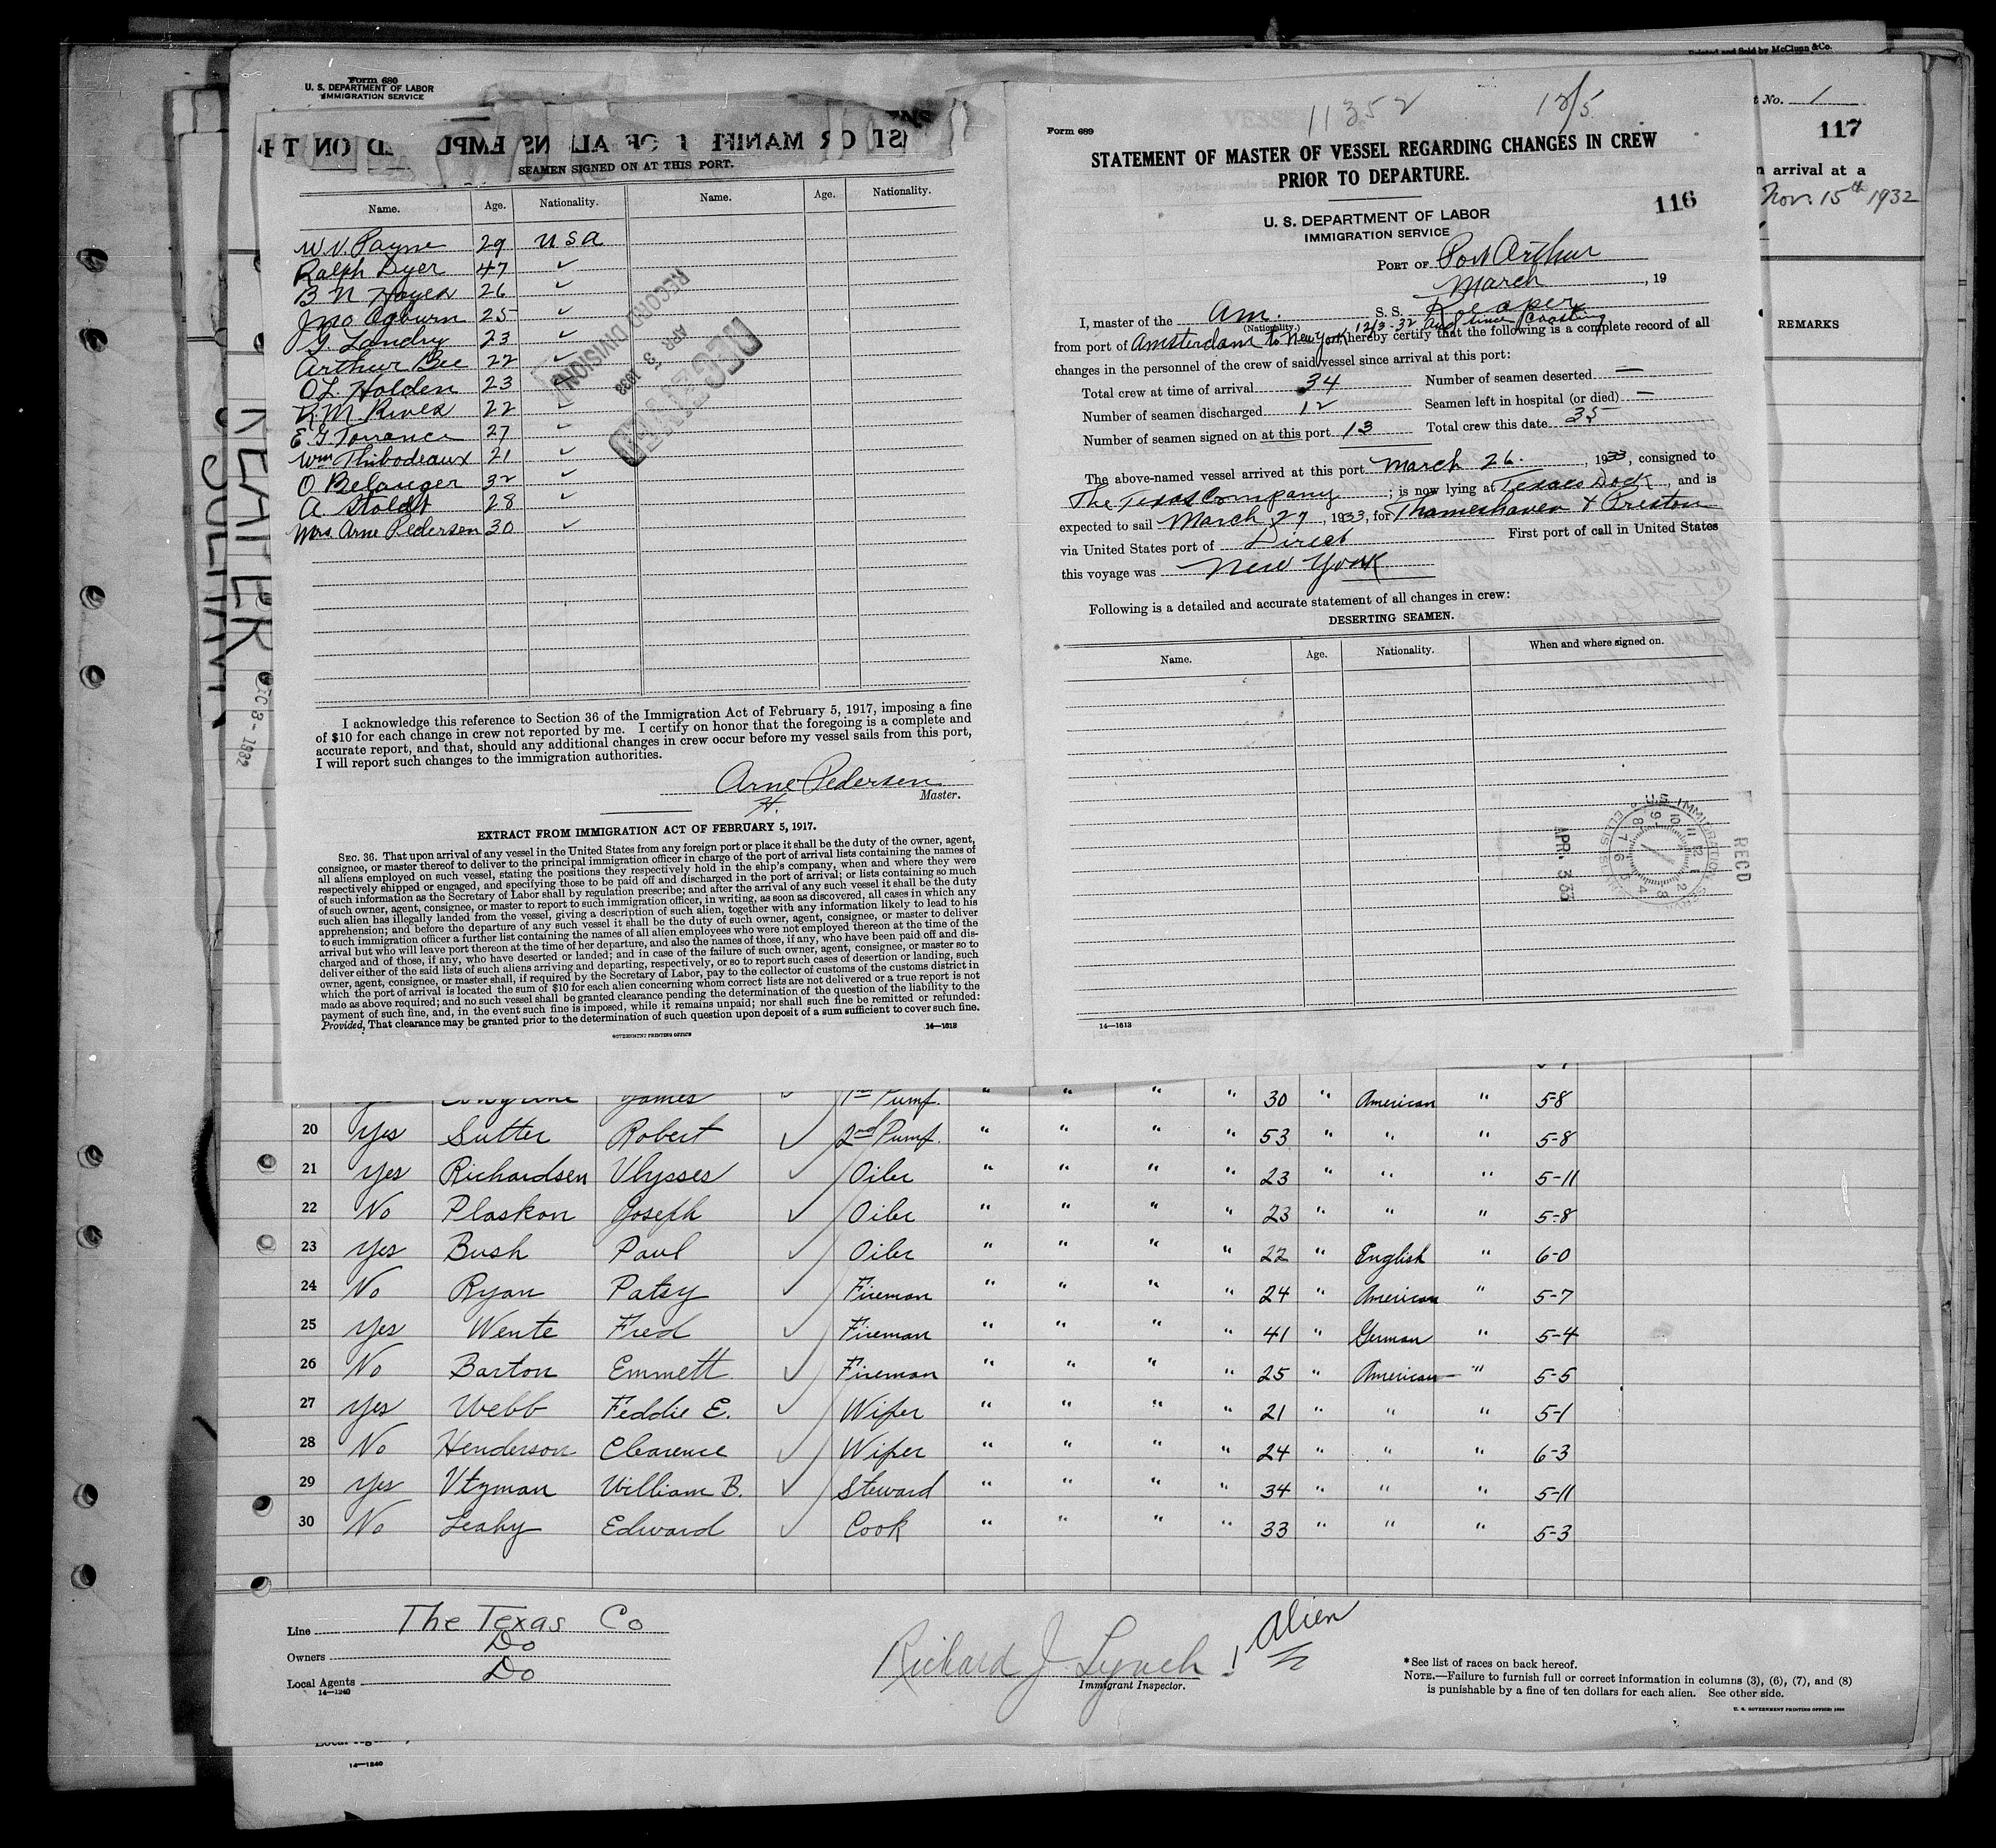 Form 689
U. S. DEPARTMENT OF LABOR
IMMIGRATION SERVICE
SEAMEN SIGNED ON AT THIS PORT.
Name. Age. Nationality. Name. Age. Nationality.
W. V. Payne 29 USA
Ralph Dyer 47 ✓
B N Hayes 26 ✓
Jno Ogburn 25 ✓
G. Landry 23 ✓
Arthur Bee 22 ✓
O L. Holden 23 ✓
R. M Rives 22 ✓
E G Torrance 27 ✓
Wm Thibodeaux 21 ✓
O Belanger 32 ✓
A Stoldt 28 ✓
Mrs. Arne Pedersen 30 ✓
RECEIVED
APR 3 1933
RECORD DIVISION
I acknowledge this reference to Section 36 of the Immigration Act of February 5, 1917, imposing a fine
of $10 for each change in crew not reported by me. I certify on honor that the foregoing is a complete and
accurate report, and that, should any additional changes in crew occur before my vessel sails from this port,
I will report such changes to the immigration authorities.
Arne Pedersen
Master.
EXTRACT FROM IMMIGRATION ACT OF FEBRUARY 5, 1917.
SEC. 36. That upon arrival of any vessel in the United States from any foreign port or place it shall be the duty of the owner, agent,
consignee, or master thereof to deliver to the principal immigration officer in charge of the port of arrival lists containing the names of
all aliens employed on such vessel, stating the positions they respectively hold in the ship's company, when and where they were
respectively shipped or engaged, and specifying those to be paid off and discharged in the port of arrival; or lists containing so much
of such information as the Secretary of Labor shall by regulation prescribe; and after the arrival of any such vessel it shall be the duty
of such owner, agent, consignee, or master to report to such immigration officer, in writing, as soon as discovered, all cases in which any
such alien has illegally landed from the vessel, giving a description of such alien, together with any information likely to lead to his
apprehension; and before the departure of any such vessel it shall be the duty of such owner, agent, consignee, or master to deliver
to such immigration officer a further list containing the names of all alien employees who were not employed thereon at the time of the
arrival but who will leave port thereon at the time of her departure, and also the names of those, if any, who have been paid off and dis-
charged and of those, if any, who have deserted or landed; and in case of the failure of such owner, agent, consignee, or master so to
deliver either of the said lists of such aliens arriving and departing, respectively, or so to report such cases of desertion or landing, such
owner, agent, consignee, or master shall, if required by the Secretary of Labor, pay to the collector of customs of the customs district in
which the port of arrival is located the sum of $10 for each alien concerning whom correct lists are not delivered or a true report is not
made as above required; and no such vessel shall be granted clearance pending the determination of the question of the liability to the
payment of such fine, and, in the event such fine is imposed, while it remains unpaid; nor shall such fine be remitted or refunded:
Provided, That clearance may be granted prior to the determination of such question upon deposit of a sum sufficient to cover such fine.
GOVERNMENT PRINTING OFFICE 14—1613
11352 12/5
Form 689
STATEMENT OF MASTER OF VESSEL REGARDING CHANGES IN CREW
PRIOR TO DEPARTURE.
116
U. S. DEPARTMENT OF LABOR
IMMIGRATION SERVICE
PORT OF Port Arthur
March, 19
I, master of the Am. S. S. Reaper
(Nationality.) 12/3-32 and since coasting
from port of Amsterdam to New York hereby certify that the following is a complete record of all
changes in the personnel of the crew of said vessel since arrival at this port:
Total crew at time of arrival 34 Number of seamen deserted —
Number of seamen discharged 12 Seamen left in hospital (or died) —
Number of seamen signed on at this port 13 Total crew this date 35
The above-named vessel arrived at this port March 26, 1933, consigned to
The Texas Company; is now lying at Texaco Dock, and is
expected to sail March 27, 1933, for Thameshaven & Preston
via United States port of Direct First port of call in United States
this voyage was New York
Following is a detailed and accurate statement of all changes in crew:
DESERTING SEAMEN.
Name. Age. Nationality. When and where signed on.
REC'D
U.S. IMMIGRATION
APR. 3 33
14—1613
Printed and Sold by McClunn & Co.
No. 1
117
arrival at a
Nov. 15th 1932
REMARKS
NEATER
DEC 3 - 1932
James ✓ 1st Pump. " " " " 30 " American " 5-8
20 Yes Sutter Robert ✓ 2nd Pump. " " " " 53 " " " 5-8
21 Yes Richardsen Ulysses ✓ Oiler " " " " 23 " " " 5-11
22 No Plaskon Joseph ✓ Oiler " " " " 23 " " " 5-8
23 Yes Bush Paul ✓ Oiler " " " " 22 " English " 6-0
24 No Ryan Patsy ✓ Fireman " " " " 24 " American " 5-7
25 Yes Wente Fred ✓ Fireman " " " " 41 " German " 5-4
26 No Barton Emmett ✓ Fireman " " " " 25 " American " 5-5
27 Yes Webb Feddie E. ✓ Wiper " " " " 21 " " " 5-1
28 No Henderson Clearence ✓ Wiper " " " " 24 " " " 6-3
29 Yes Utzman William B. ✓ Steward " " " " 34 " " " 5-11
30 No Leahy Edward ✓ Cook " " " " 33 " " " 5-3
Line The Texas Co
Owners Do
Local Agents Do
14—1240
Richard J. Lynch
Immigrant Inspector.
1 Alien
*See list of races on back hereof.
NOTE.—Failure to furnish full or correct information in columns (3), (6), (7), and (8)
is punishable by a fine of ten dollars for each alien. See other side.
14—1240